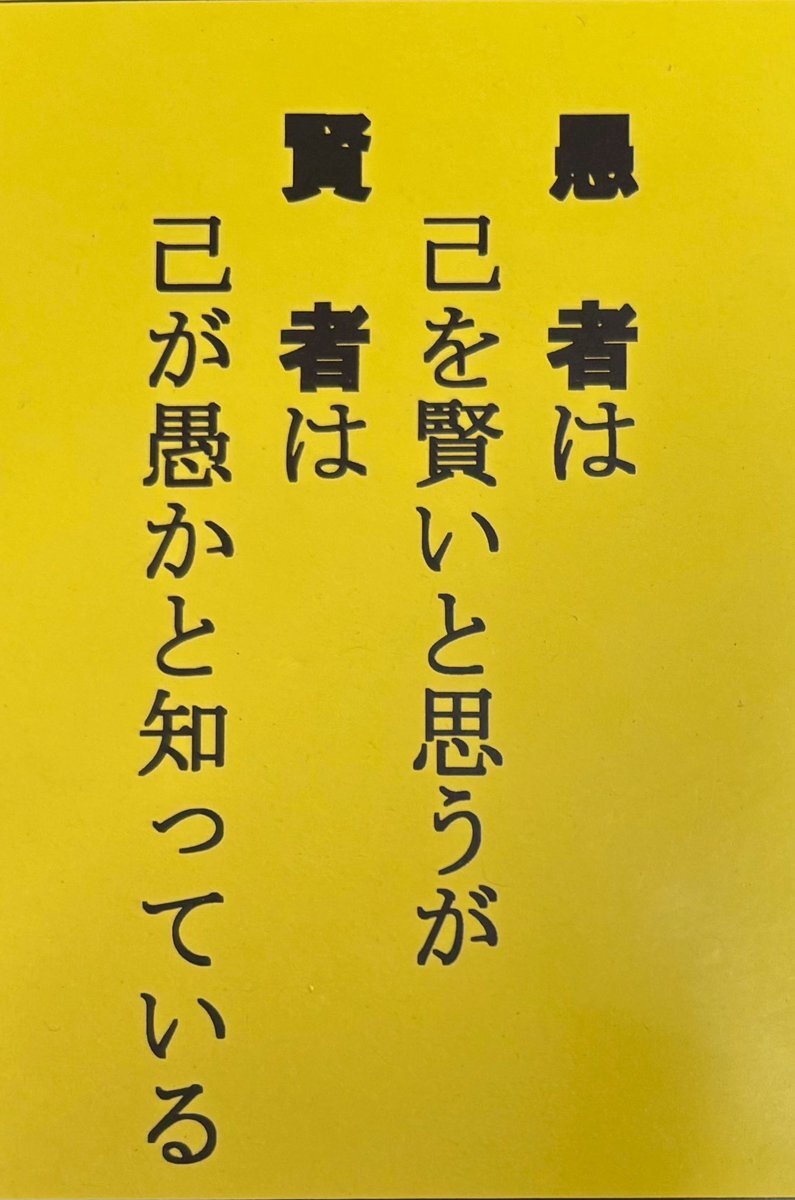 愚者は
己を賢いと思うが
賢者は
己が愚かと知っている